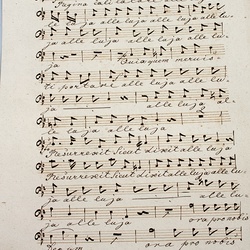 Regina Coeli laetare alle lu-
ja alle luja alle luja alle lu-
ja alle luja alle luja alle lu-
ja Quia quem meruis-
ti portare alle luja alle lu-
ja alle luja al-
le lu ja alle luja
Resurrexit sicut dixit alle luja
Resurrexit sicut dixit alle luja alle lu-
ja alle luja alle lu-
ja alle luja ora pro nobis
Deum ora pro nobis